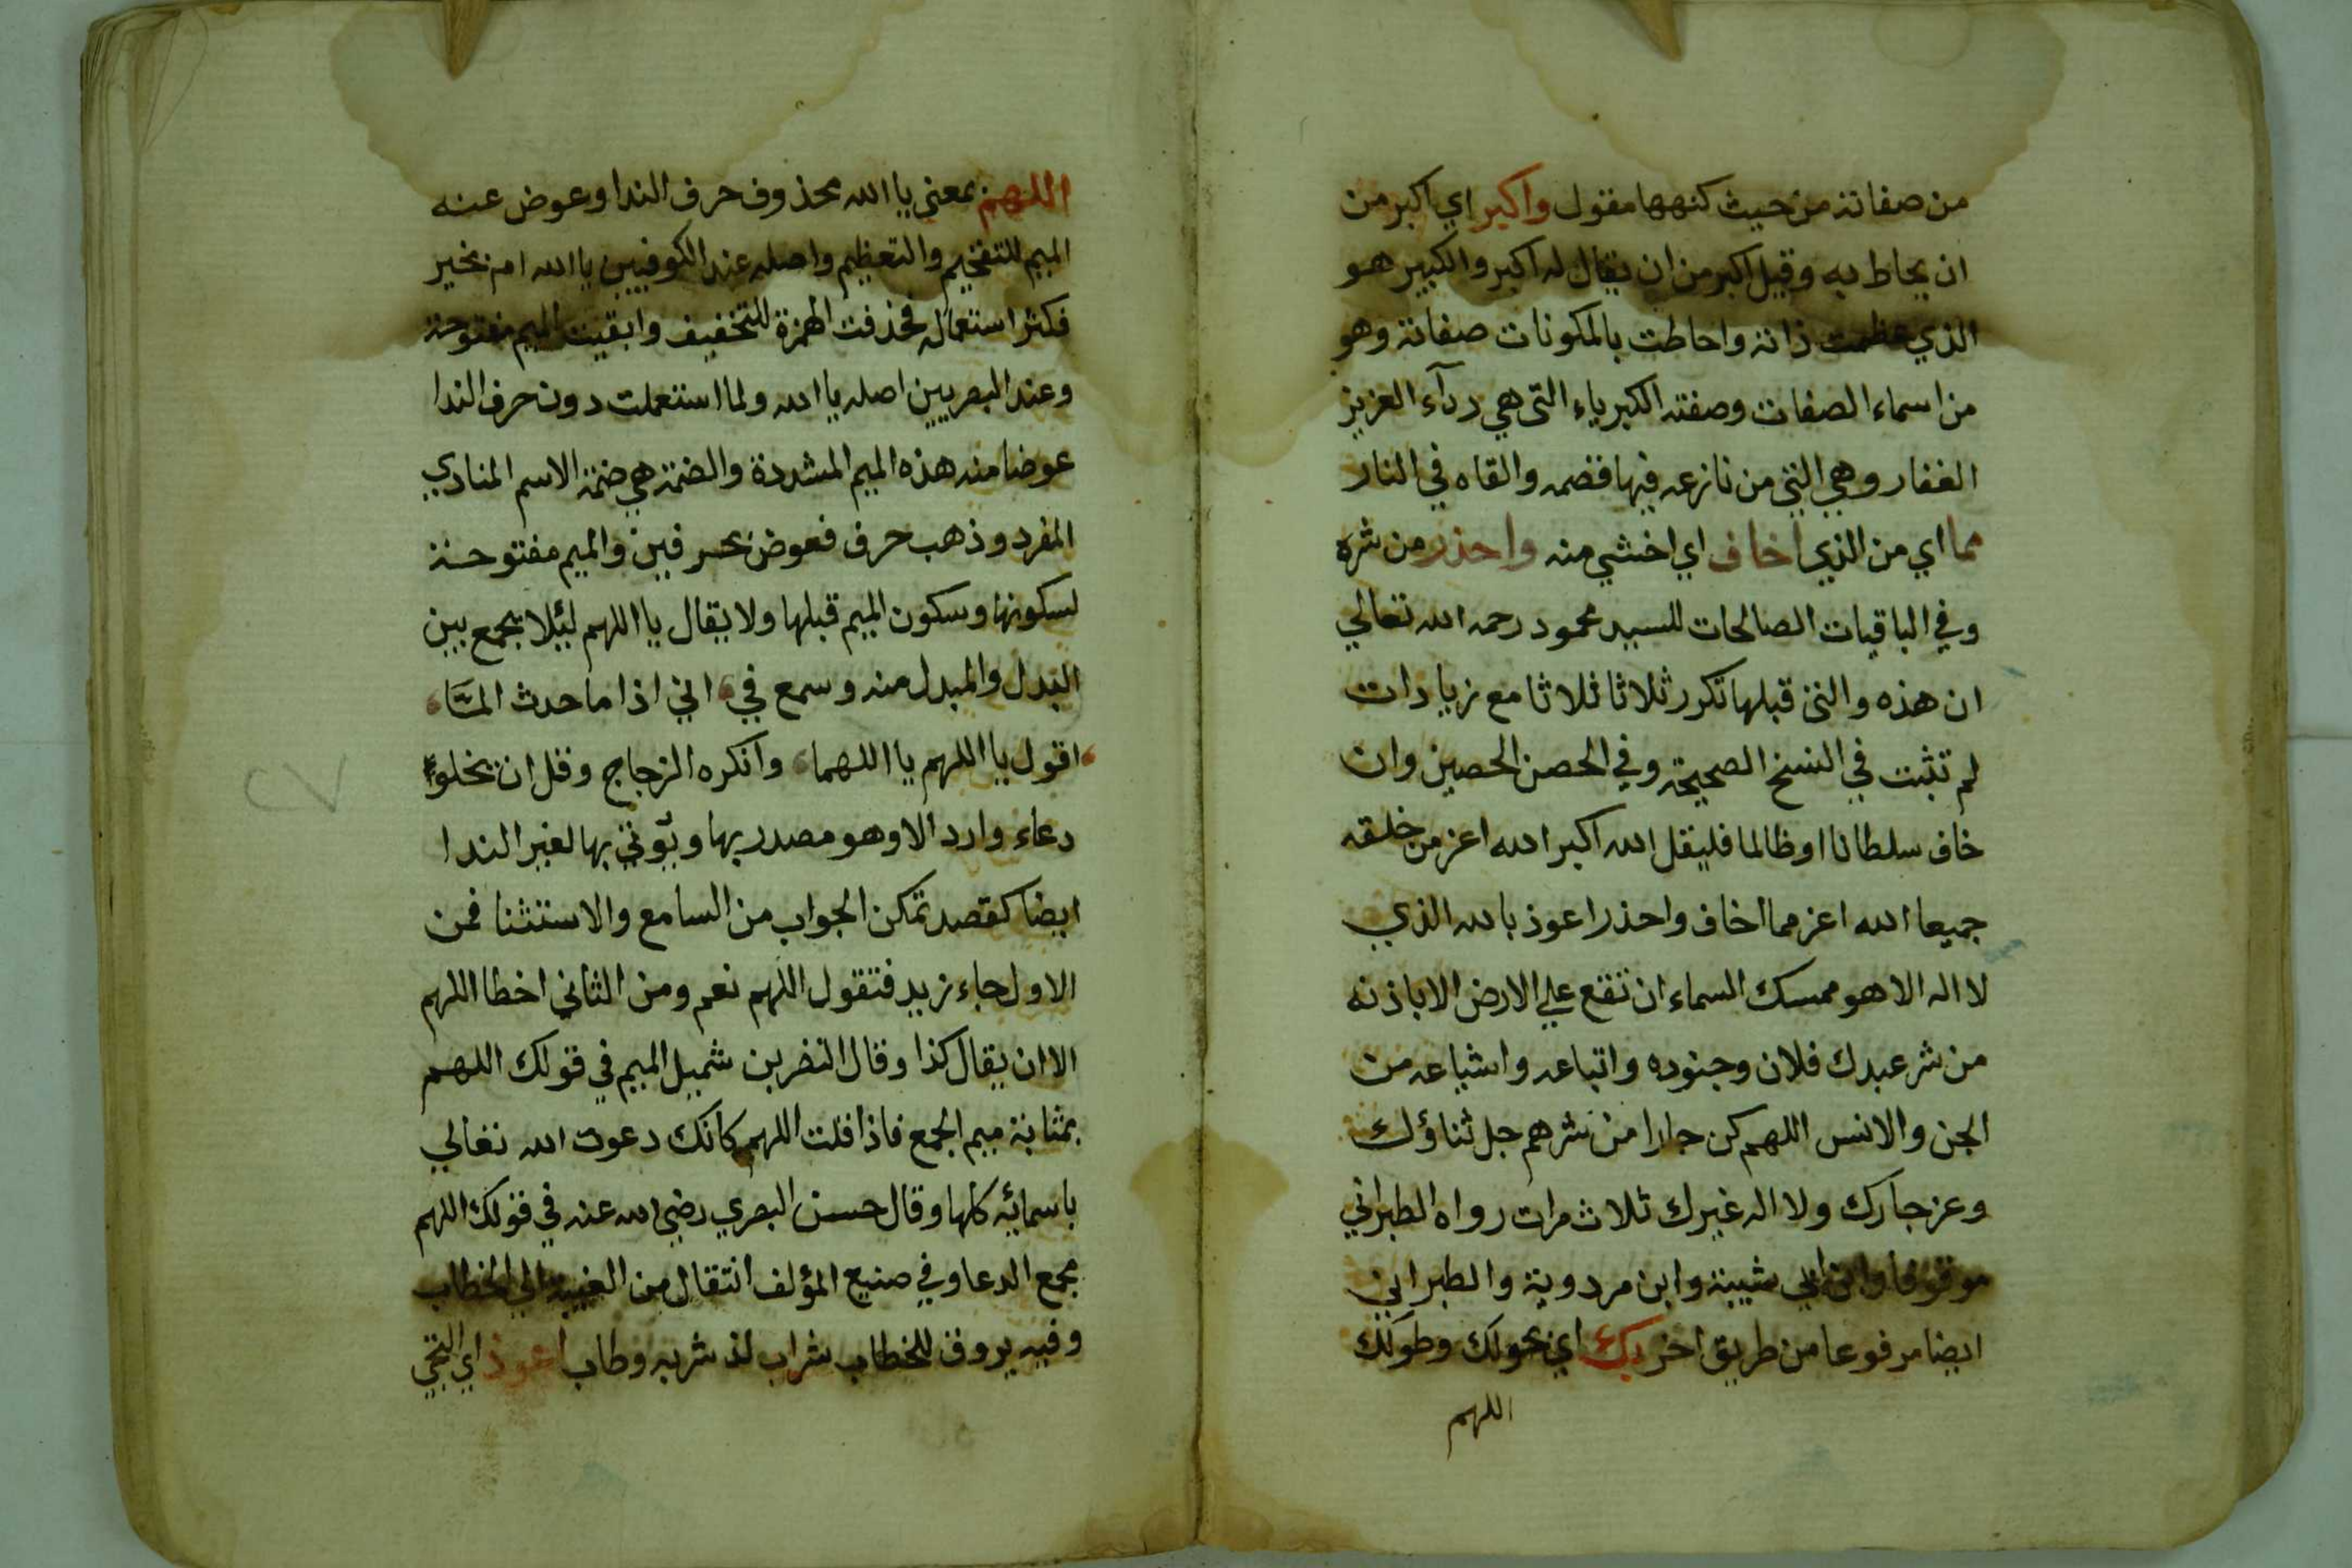 من صفاته من حيث كنهها مقول واكبر اي اكبر من
ان يحاط به وقيل اكبر من ان يقال له اكبر والكبير هو
الذي عظمت ذاته واحاطت بالمكونات صفاته وهو
من اسماء الصفات وصفته الكبرياء التي هي ردآء العزيز
الغفار وهي التي من نازعه فيها قصمه والقاه في النار
مما اي من الذي اخاف اي اخشي منه واحذر من شره
وفي الباقيات الصالحات للسيد محمود رحمه الله تعالي
ان هذه والتي قبلها تكرر ثلاثا ثلاثا مع زيادات
لم تثبت في النسخ الصحيحة وفي الحصن الحصين وان
خاف سلطانا او ظالما فليقل الله اكبر الله اعز من خلقه
جميعا الله اعز مما اخاف واحذر اعوذ بالله الذي
لا اله الا هو ممسك السماء ان تقع علي الارض الا باذنه
من شر عبدك فلان وجنوده واتباعه واشياعه من
الجن والانس اللهم كن جارا من شرهم جل ثناؤك
وعز جارك ولا اله غيرك ثلاث مرات رواه الطبراني
موقوفا وابن ابي شيبة وابن مردوية والطبراني
ايضا مرفوعا من طريق اخر بك اي بحولك وطولك
اللهم
اللهم بمعني يا الله محذوف حرف الندا وعوض عنه
الميم للتفخيم والتعظيم واصله عند الكوفيين يا الله ام بخير
فكثر استعماله فحذفت الهمزة للتخفيف وابقيت الميم مفتوحة
وعند البصريين اصله يا الله ولما استعملت دون حرف الندا
عوضا منه هذه الميم المشددة والضمة هي ضمة الاسم المنادي
المفرد وذهب حرف فعوض بحرفين والميم مفتوحة
لسكونها وسكون الميم قبلها ولا يقال يا اللهم ليئلا يجمع بين
البدل والمبدل منه وسمع في اني اذا ما حدث المّا
اقول يا اللهم يا اللهما وانكره الزجاج وقل ان يخلو
دعاء وارد الا وهو مصدر بها ويؤتي بها لغير الندا
ايضا كقصد تمكن الجواب من السامع والاستثنا فمن
الاول جاء زيد فتقول اللهم نعم ومن الثاني اخطا اللهم
الا ان يقال كذا وقال النضر بن شميل الميم في قولك اللهم
بمثابة ميم الجمع فاذا قلت اللهم كانك دعوت الله تعالي
باسمائه كلها وقال حسن البصري رضي الله عنه في قولك اللهم
مجمع الدعا وفي صنيع المؤلف انتقال من الغيبة الي الخطاب
وفيه يروق للخطاب شراب لذ شربه وطاب اعوذ اي التجي